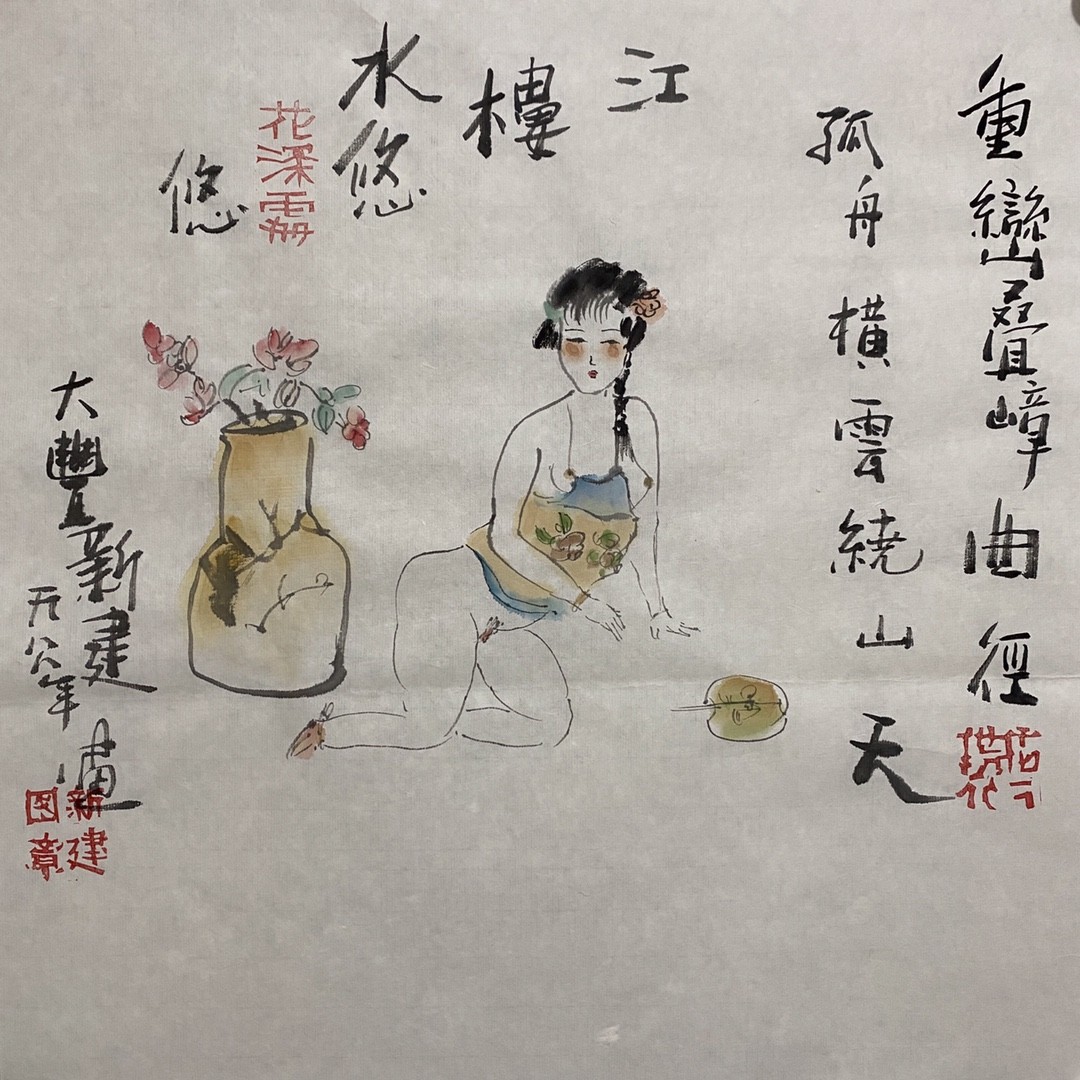 重巒疊嶂曲徑
孤舟橫雲繞山天
江樓水悠悠
花深
大豐新建畫
年
新建
图章